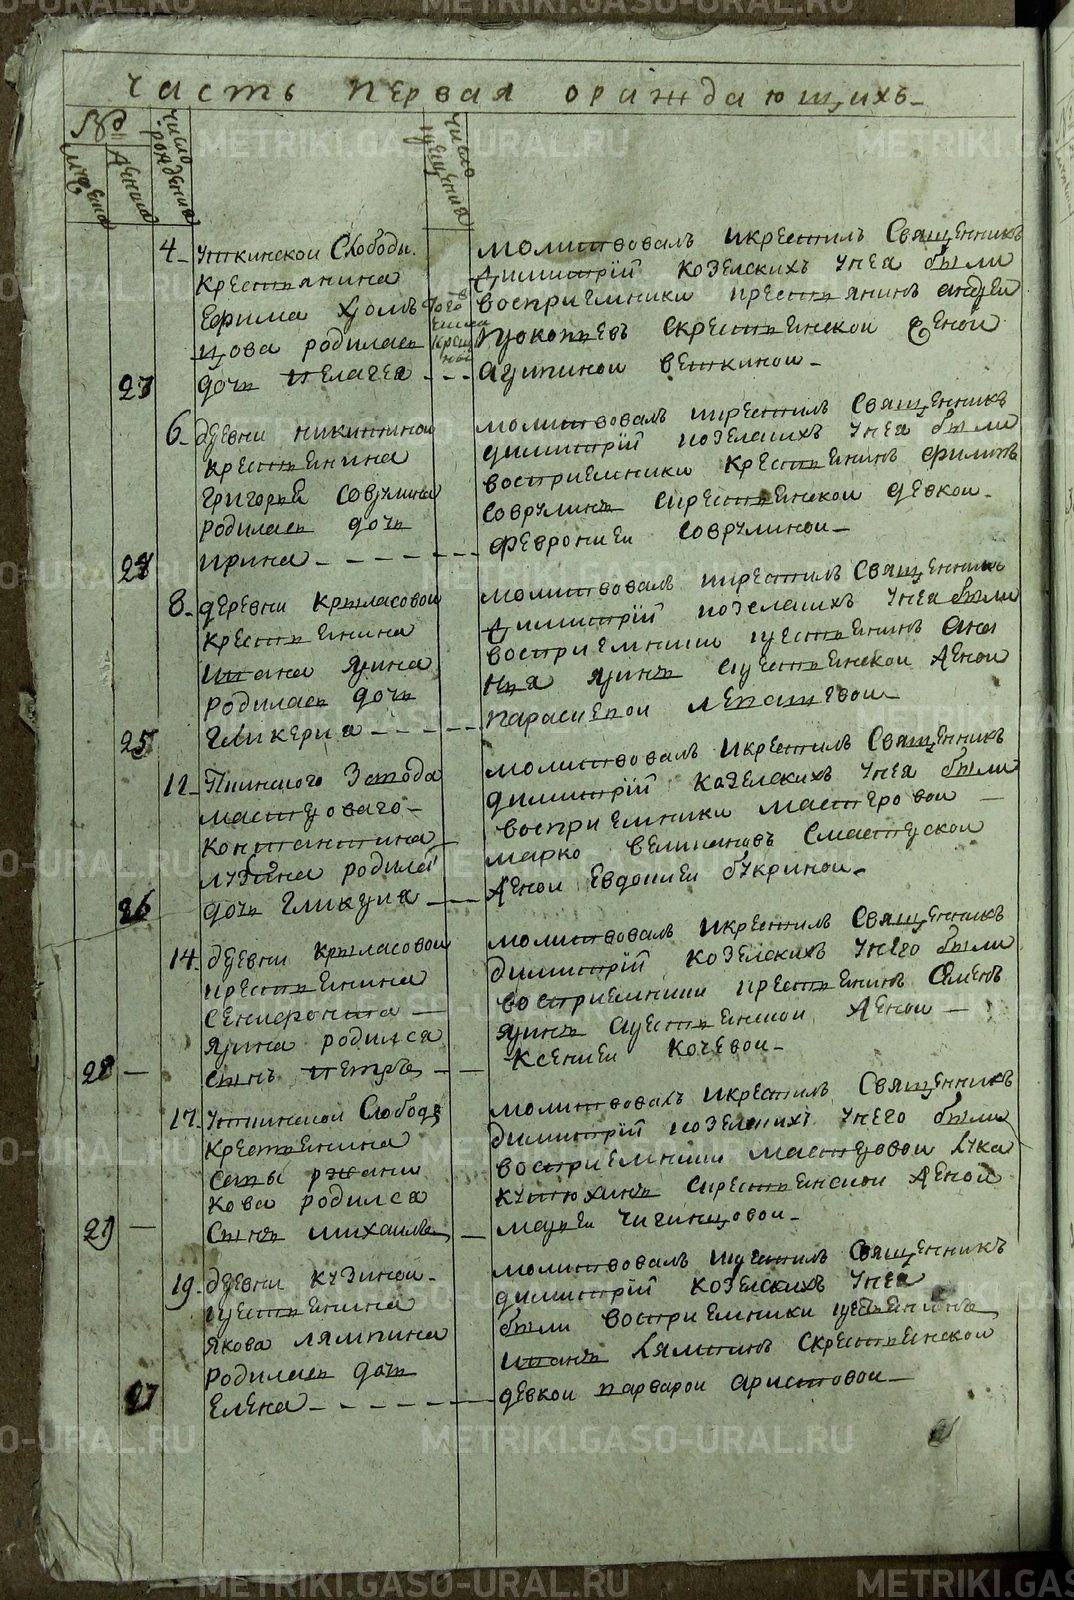 часть первая ораждающихъ
№
мужеска
женска
число рождения
число крещения
4 Уткинской Слободы
крестьянина
Ефима
родилась
23 дочь Пелагея
молитвовалъ и крестилъ Священникъ
Димитрій Козелскихъ у нея были
восприемники крестьянинъ андрей
прокопьевъ с крестьянской женой
агрипиной вешкиной
6 деревни никитиной
крестьенина
григорья Соврулина
родилась дочь
24 ирина
молитвовалъ и крестилъ Священникъ
димитрій козелскихъ у нея были
восприемники крестьенинъ филипъ
Соврулинъ с крестьенской девкой
февронией Соврулиной
8 деревни крыласовой
крестьенина
ивана ярина
родилась дочь
25 Гликерия
молитвовалъ и крестилъ Священникъ
димитрій козелскихъ у нея были
восприемники крестьенинъ ана
ния яринъ с крестьенской женой
параскевой
12 завода
мастерового
константина
родилась
26 дочь Гликерия
молитвовалъ и крестилъ Священникъ
димитрій козелскихъ у нея были
восприемники мастеровой
марко с мастерской
женой Евдокией букриной
14 деревни крыласовой
крестьенина
ксенофонта
ярина родился
28 сынъ петръ
молитвовалъ и крестилъ Священникъ
димитрій козелскихъ у него были
восприемники крестьенинъ Семенъ
яринъ с крестьенской женой
ксенией кочевой
17 Уткинской Слободы
крестьенина
кова родился
29 Сынъ михаилъ
молитвовалъ и крестилъ Священникъ
димитрій козелскихъ у него были
восприемники мастеровой лука
с крестьенской женой
марьей
19 деревни кузиной
крестьенина
якова лямпина
родилась дочь
27 Елена
молитвовалъ и крестилъ Священникъ
димитрій козелскихъ у нея
были восприемники крестьенинъ
иванъ с крестьенской
девкой варварой аристовой
METRIKI.GASO-URAL.RU